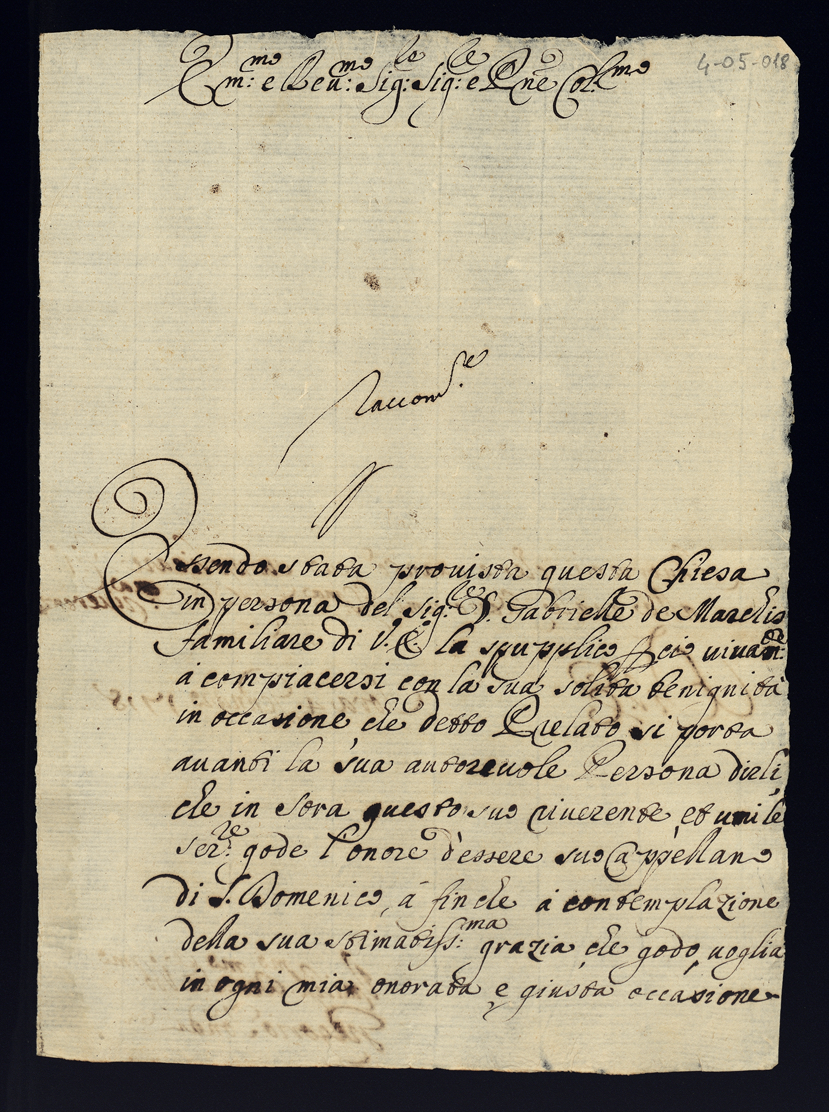 Em:mo e Reu:mo Sig:re Sig:re e Pne Col:mo
4-05-018
Raccom.e
Essendo stata prouista questa Chiesa
in persona del Sig:re D. Gabrielle de Marchis
familiare di V.E. la supplico ciò viuam:te
à compiacersi con la sua solita benignità
in occasione che detto Prelato si porta
auanti la sua autoreuole Persona dirli
che in Sora questo suo riuerente et umile
ser:re gode l'onore d'essere suo Cappellano
di S. Domenico, à finche à contemplazione
della sua stimatiss:ma grazia che godo, uoglia
in ogni mia onorata e giusta occasione